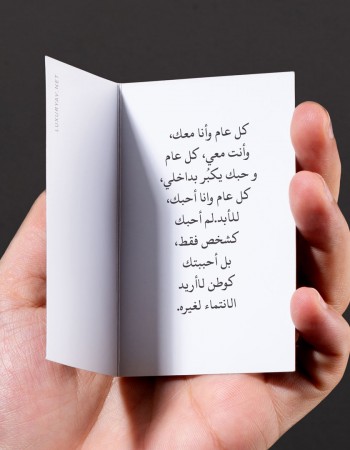 كل عام وأنا معك،
وأنت معي، كل عام
و حبك يكبُر بداخلي،
كل عام وانا أحبك،
للأبد.لم أحبك
كشخص فقط،
بل أحببتك
كوطن لاأريد
الانتماء لغيره.
LUXURYAY.NET